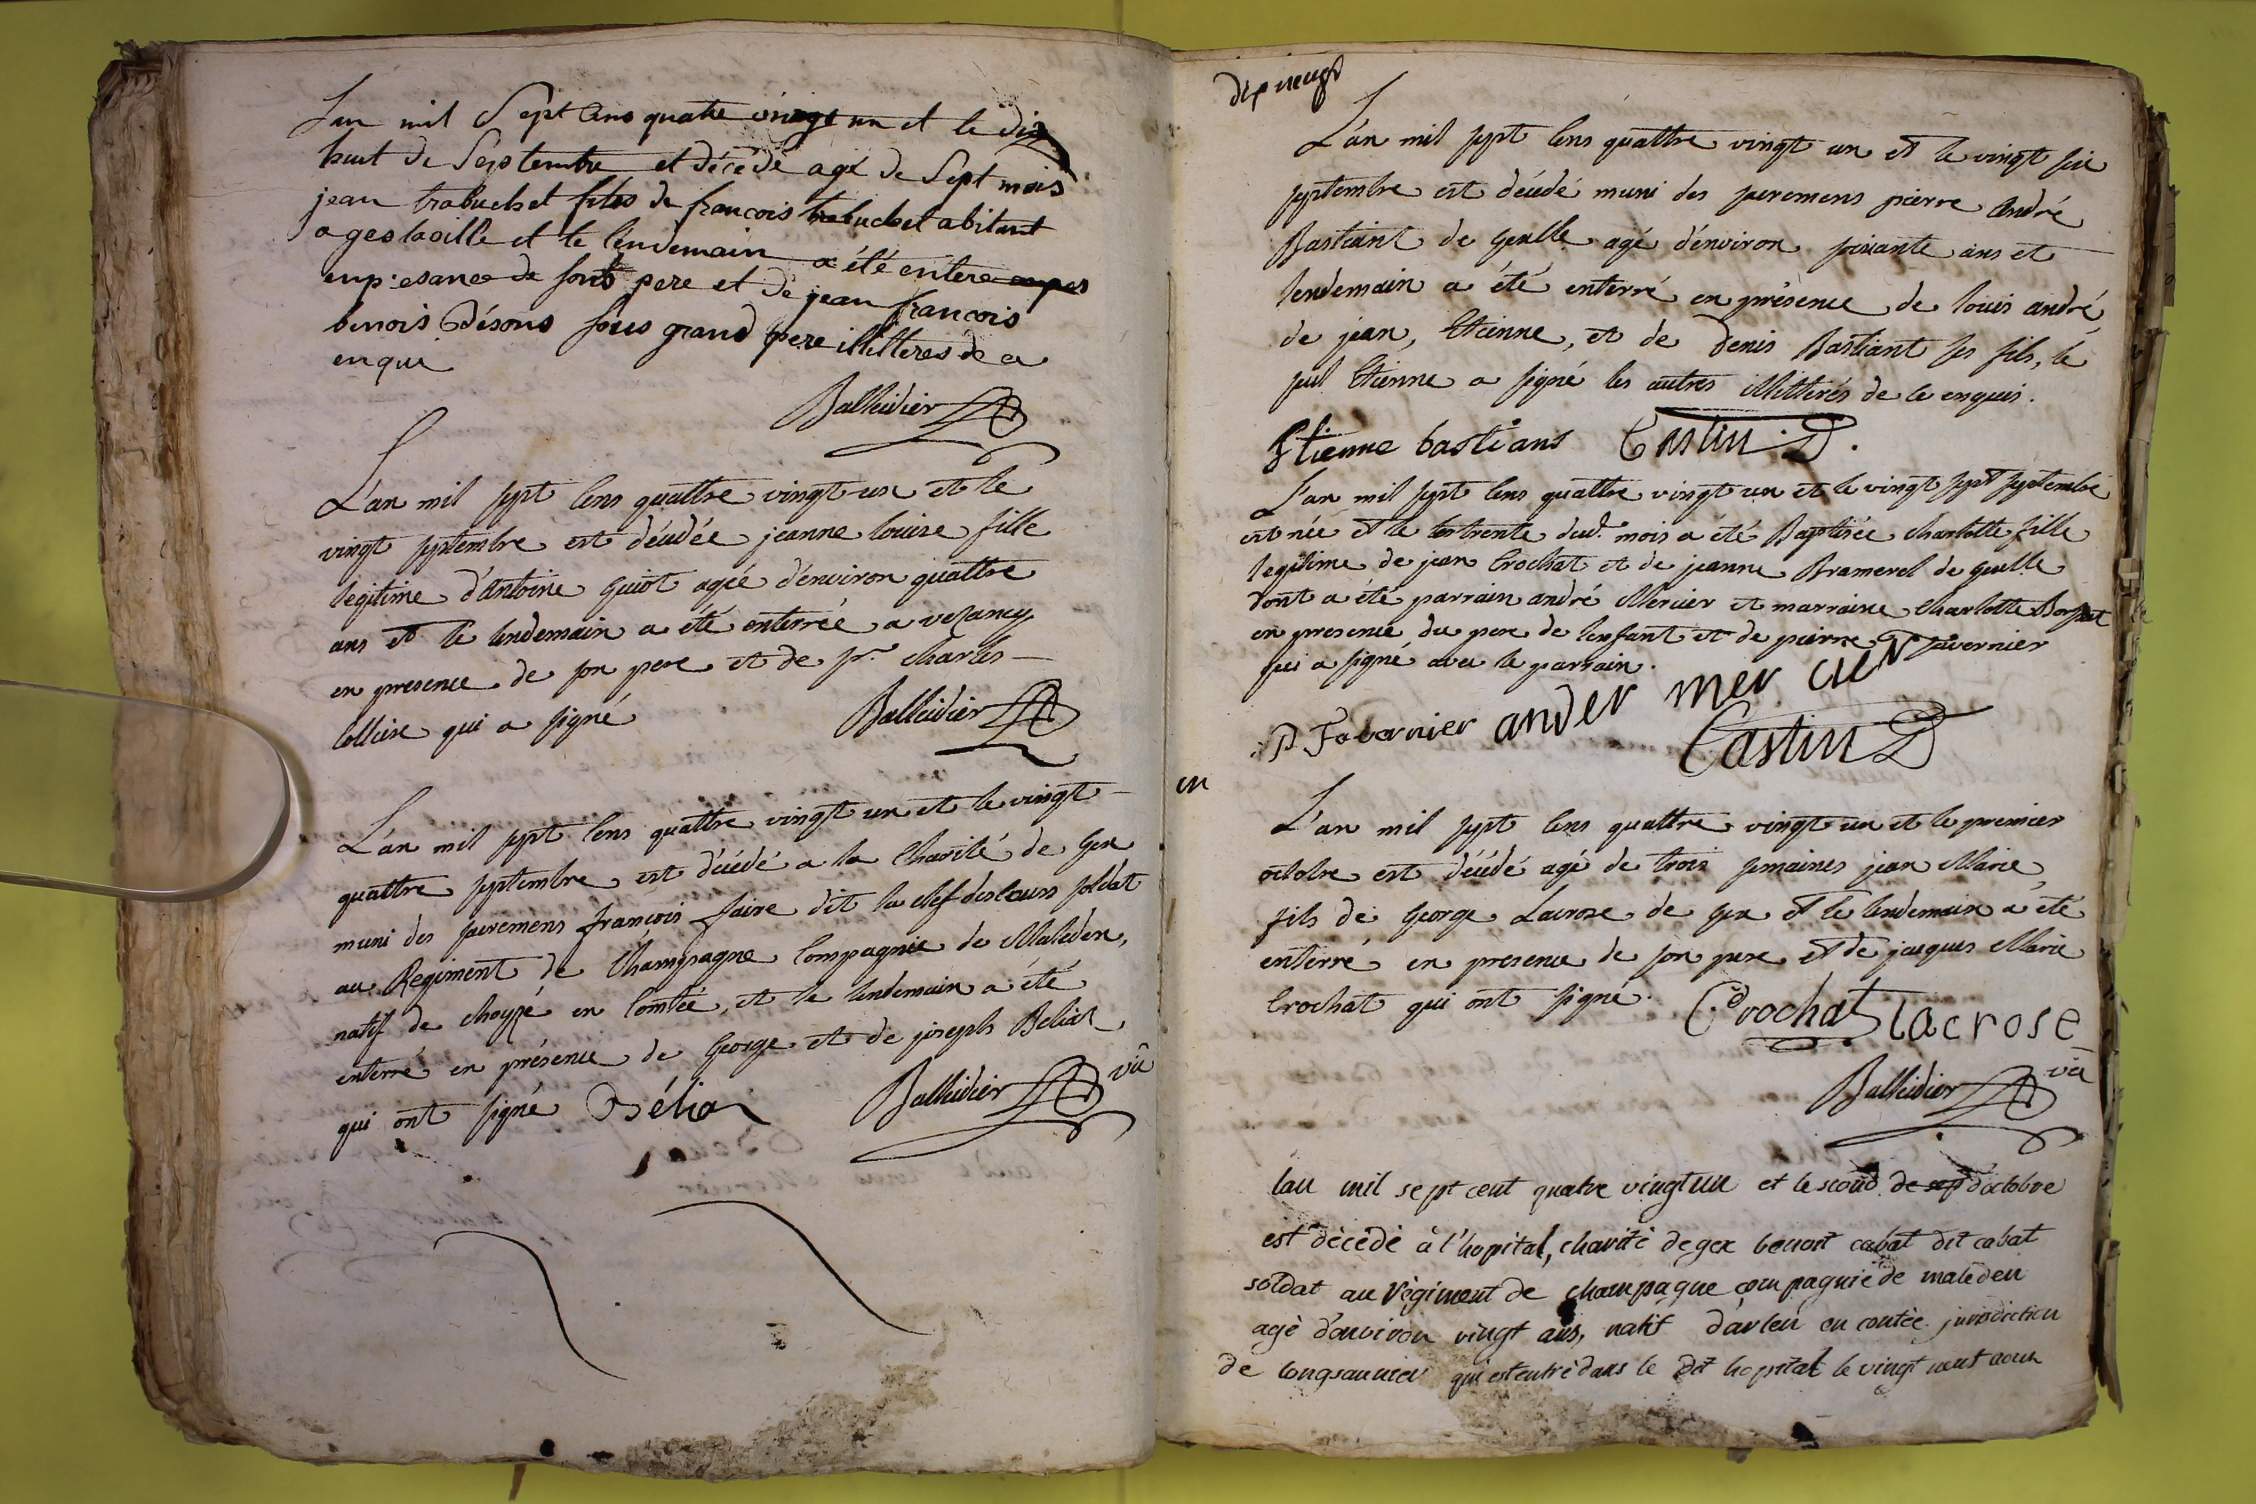 Lan mil Sept Cens quatre vingt un et le dix
huit de Septembre et décédé agé de Sept mois
jean trabuchet fils de francois trabuchet abitant
a geo la ville et le lendemain a été entere
enpresance de sont pere et de jean francois
benois Désons sous grand pere illitteres de ce
enqui
Balleidier
L'an mil sept cens quattre vingt un et le
vingt septembre est décédée jeanne louise fille
legitime d'antoine Guiot agée d'environ quattre
ans et le lendemain a été enterrée a vesancy
en presence de son pere et de Sr. charles
collise qui a signé Balleidier
L'an mil sept cens quattre vingt un et le vingt
quattre septembre est décédé a la Charité de Gex
muni des sacremens françois faire dit la clef des cœurs soldat
au Regiment de Champagne Compagnie de Maleden,
natif de choyzé en Comtée, et le lendemain a été
enterré en présence de George et de joseph Beliar
qui ont signé Béliar Balleidier vû
dix neuf
L'an mil sept cens quattre vingt un et le vingt six
septembre est décédé muni des sacremens pierre André
Bastiant de Gexlle agé d'environ soixante ans et
lendemain a été enterré en présence de louis andré,
de jean, Etienne, et de Denis Bastiant ses fils, le
seul Etienne a signé les autres illittérés de ce enquis.
Etienne bastians Castin D.
L'an mil sept cens quattre vingt un et le vingt sept septembre
est née et le trente dud. mois a été Baptisée charlotte fille
legitime de jean Crochat et de jeanne Bramerel de Gexlle
dont a été parrain andré Mercier et marraine charlotte
en presence du pere de l'enfant et de pierre favernier
qui a signé avec le parrain.
P. Favernier ander mer cier
Castin D
en
L'an mil sept cens quattre vingt un et le premier
octobre est décédé agé de trois semaines jean Marie
fils de George Lacroze de Gex et le lendemain a été
enterré en presence de son pere et de jacques Marie
Crochat qui ont signé. Crochat lacrose
Balleidier vû
lan mil sept cent quatre vingt un et le scond de sep d'octobre
est décédé à l'hopital, charité de gex benoit cabat dit cabat
soldat au régiment de champagne compagnie de maleden
agé d'anviron vingt ans, natif d'arleu en contée jurisdiction
de longsaunier qui est entré dans le dit hopital le vingt neuf aoux